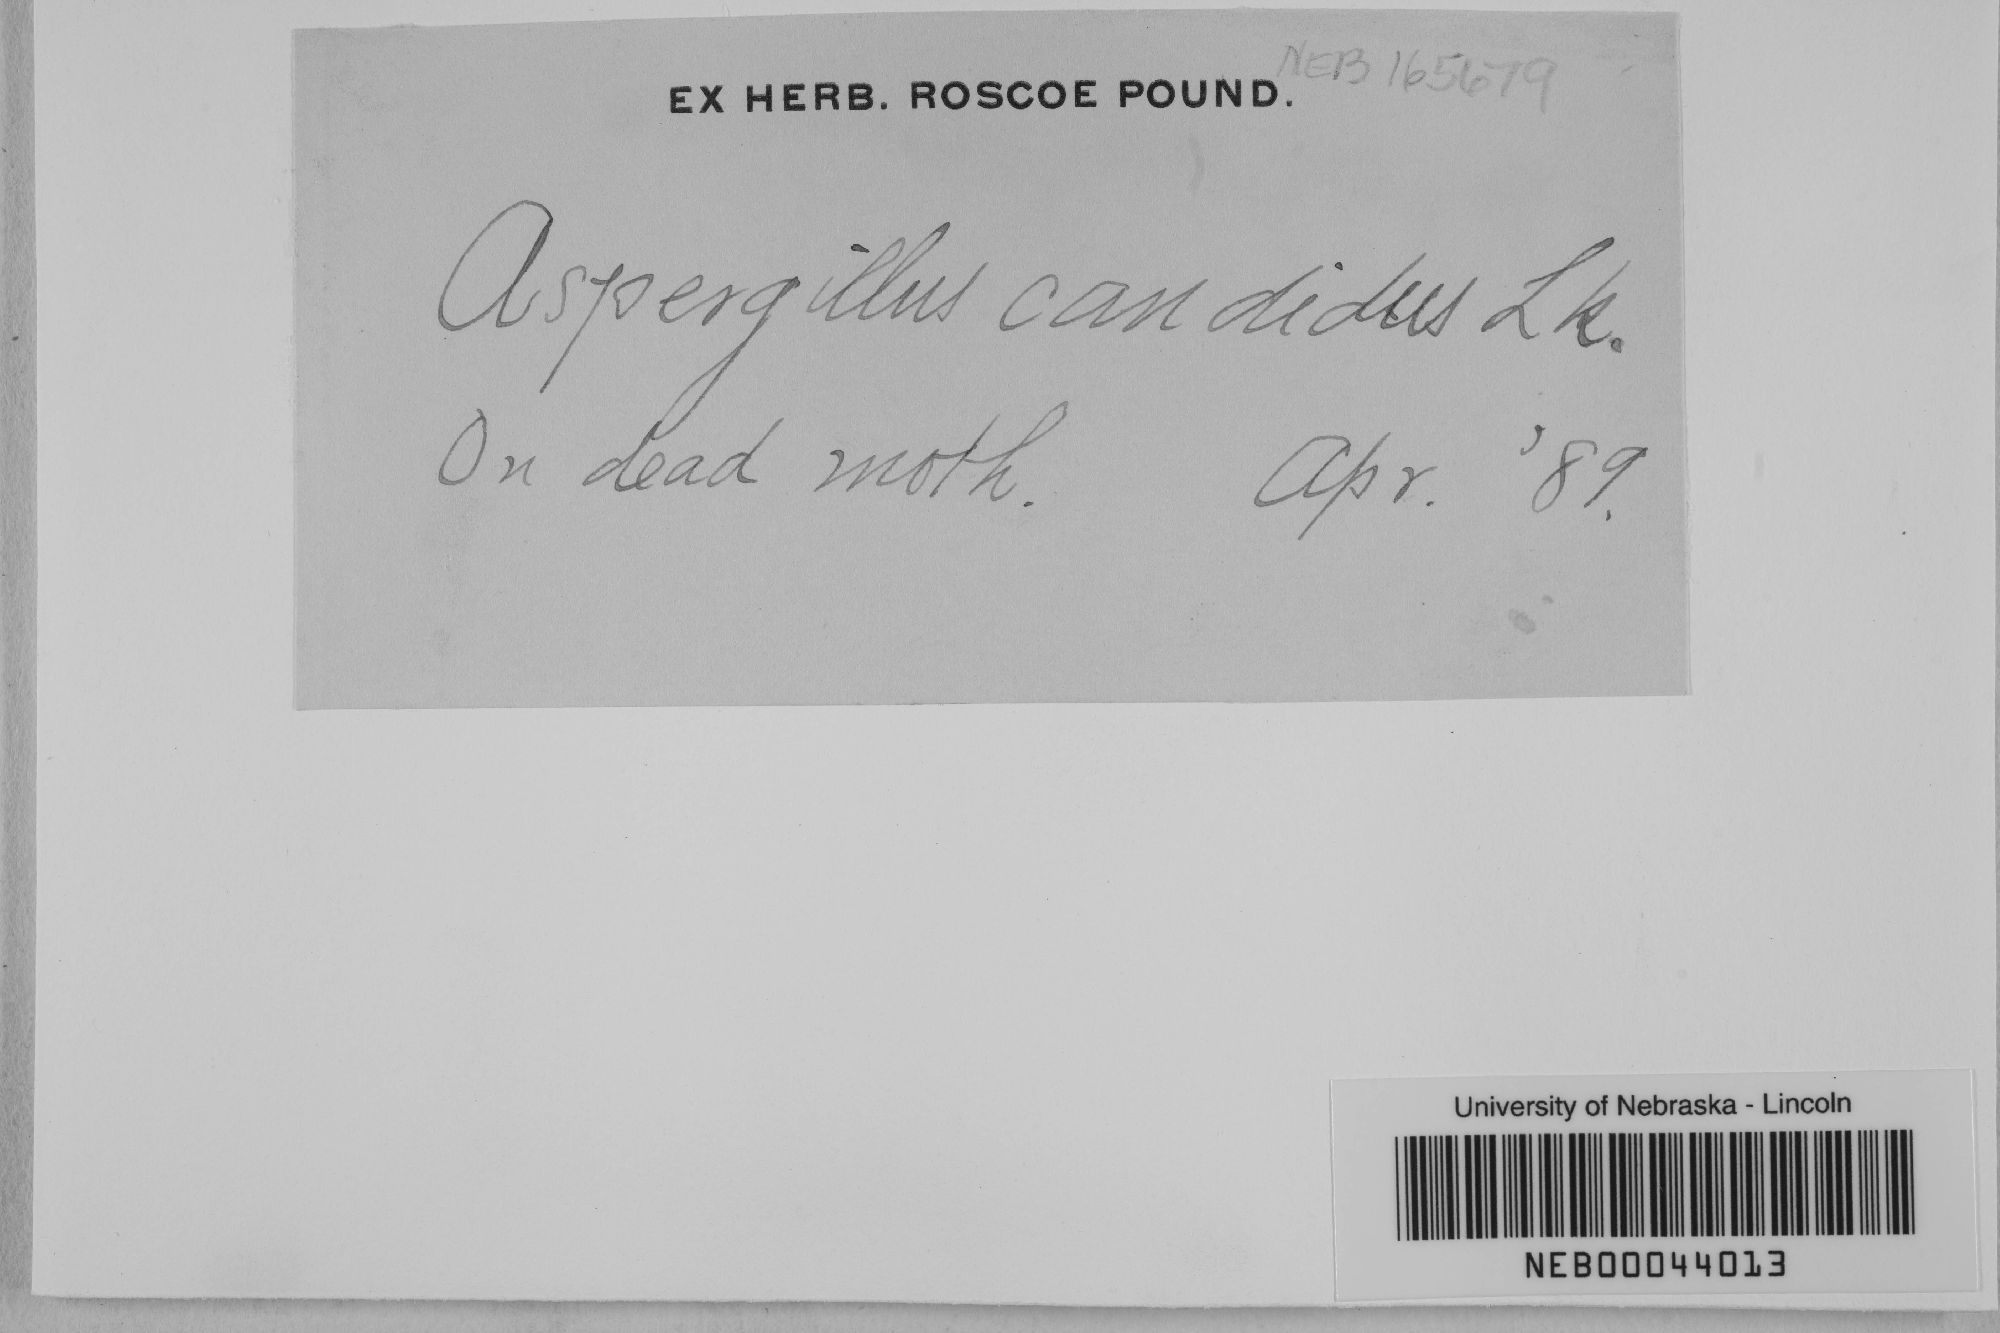 NEB 165679
EX HERB. ROSCOE POUND.
Aspergillus candidus Lk.
On dead moth. Apr. '89.
University of Nebraska - Lincoln
NEB00044013